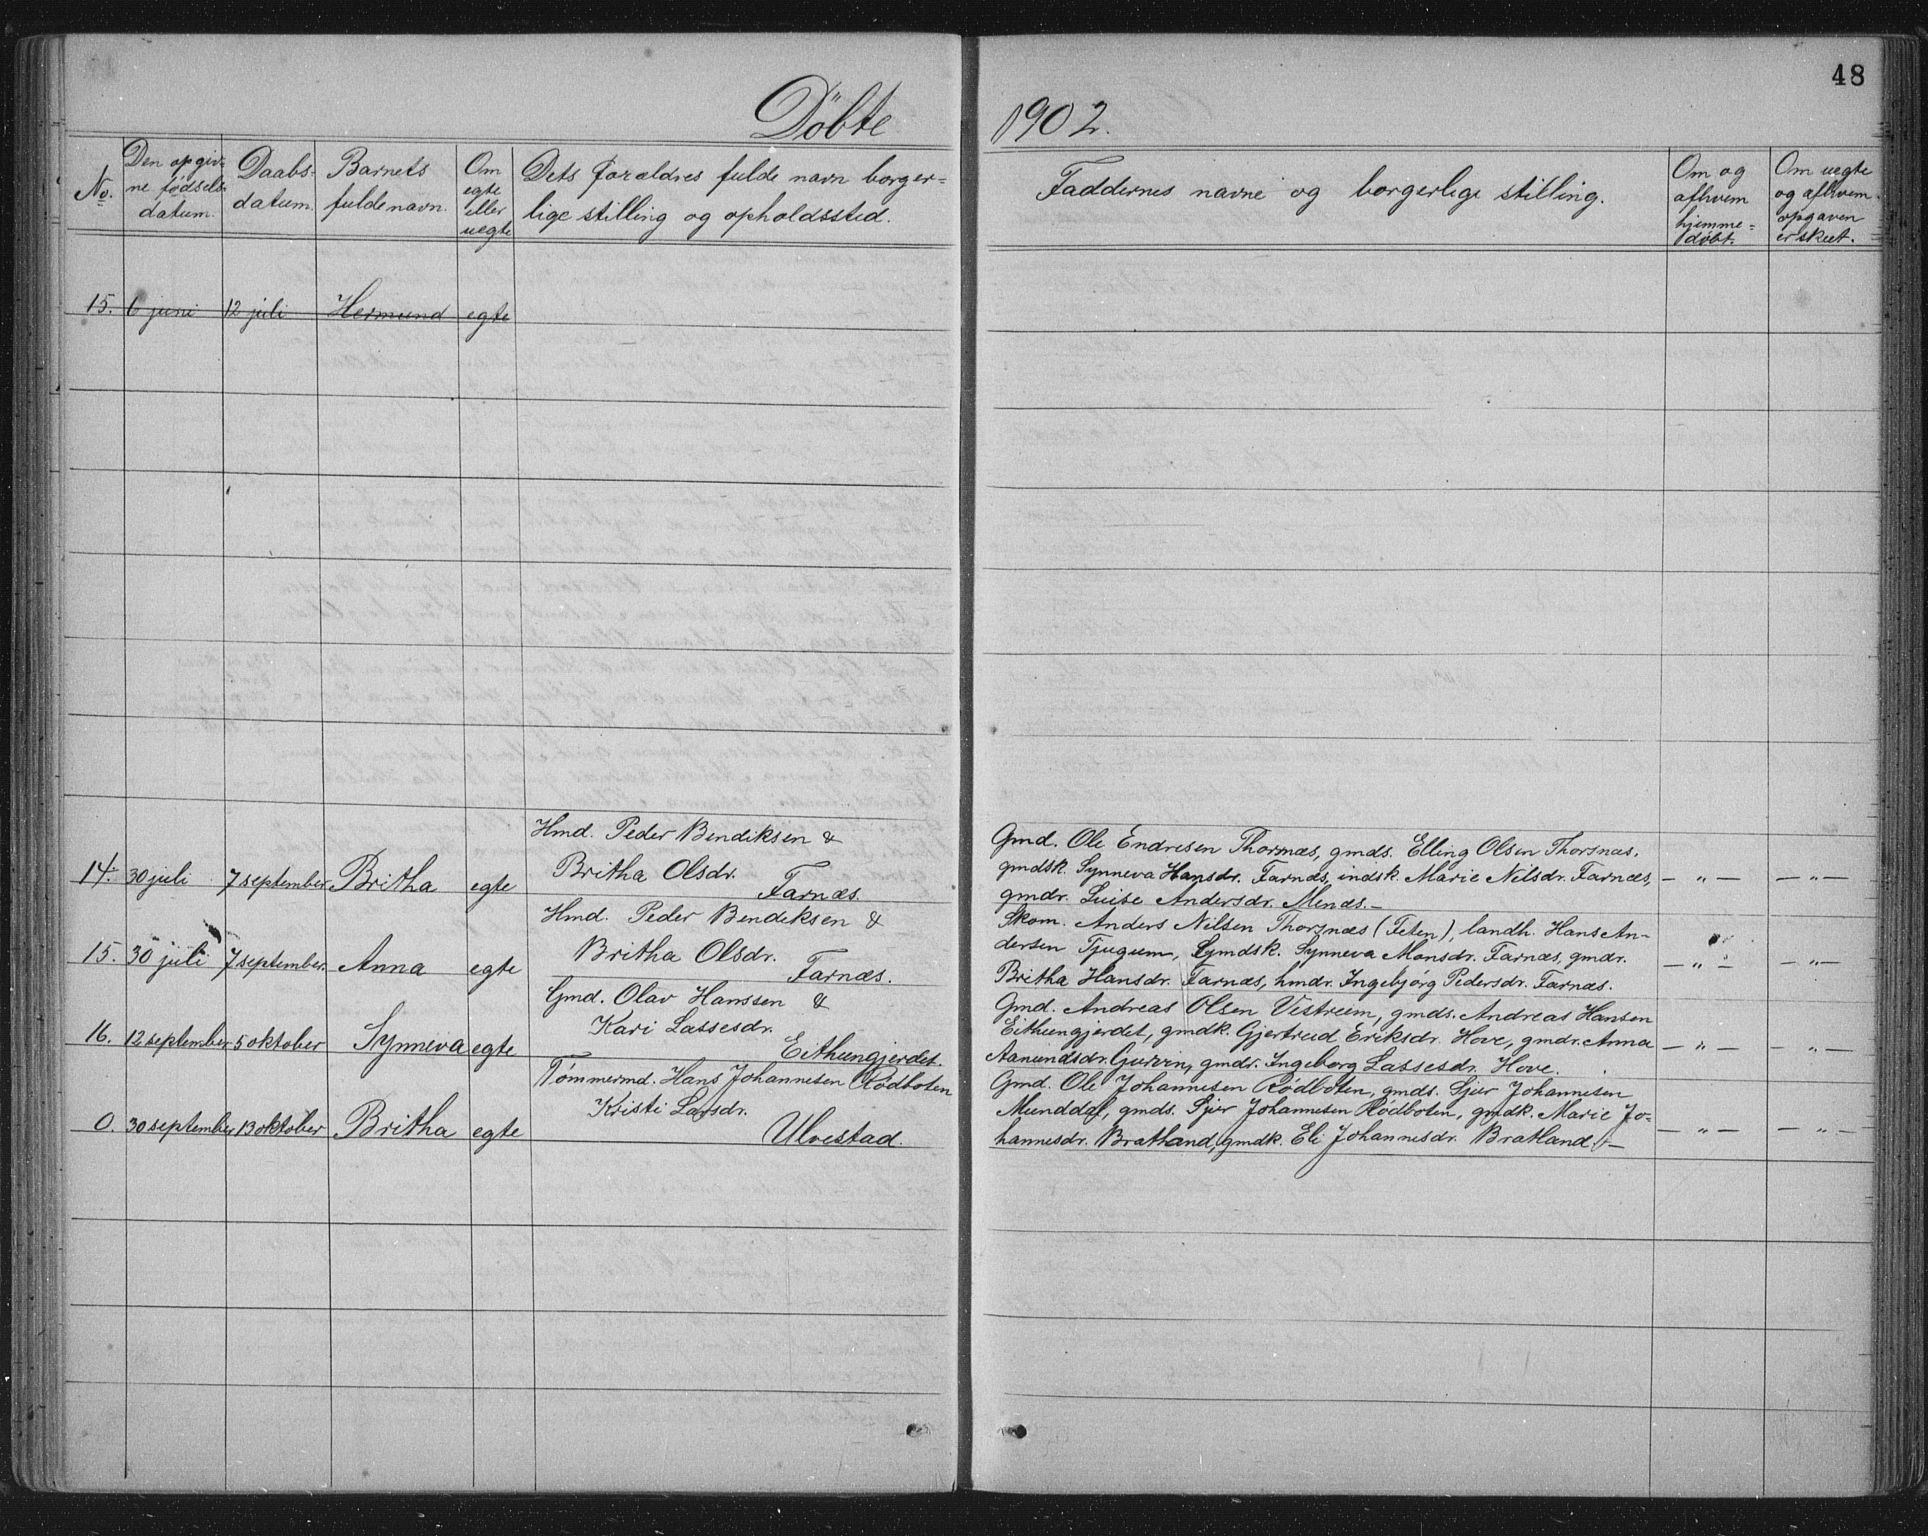 48
Döbte 1902.
No.
Den opgiv-
ne fødsels-
datum.
Daabs-
datum.
Barnets
fulde navn.
Om
egte
eller
uegte
Dets forældres fulde navn borger-
lige stilling og opholdssted.
Faddernes navne og borgerlige stilling.
Om og
af hvem
hjemme-
døbt.
Om uegte
og af hvem
opgaven
er skeet.
15. 6 juni 12 juli Hermund egte
Hmd. Peder Bendiksen &
14. 30 juli 7 september Britha egte Britha Olsdr.
Farnæs.
Gmd. Ole Endresen Thorsnæs, gmds. Elling Olsen Thorsnæs,
gmdsk. Synneva Hansdr. Farnæs, indsk. Marie Nilsdr. Farnæs, — " — — " —
gmdr. Luise Andersdr. Menæs. —
Hmd. Peder Bendiksen &
15. 30 juli 7 september Anna egte Britha Olsdr.
Farnæs.
Skom. Anders Nilsen Thorsnæs (Feten), landh. Hans An-
dersen Tjugum, gmdsk. Synneva Monsdr. Farnæs, gmdr. — " — — " —
Britha Hansdr. Farnæs, hmdr. Ingebjørg Pedersdr. Farnæs.
Gmd. Olav Hanssen &
16. 12 september 5 oktober Synneva egte Kari Lassesdr.
Eithungjerdet.
Gmd. Andreas Olsen Vestreim, gmds. Andreas Hansen
Eithungjerdet, gmdk. Gjertrud Eriksdr. Hove, gmdr. Anna — " — — " —
Aanundsdr. Gurvin, gmdr. Ingeborg Lassesdr. Hove.
Tømmermd. Hans Johannesen Rødboten
0. 30 september 13 oktober Britha egte Kristi Larsdr.
Ulvestad.
Gmd. Ole Johannesen Rødboten, gmds. Sjur Johannesen
Munddal, gmds. Sjur Johannesen Rødboten, gmdk. Marie Jo-
hannesdr. Bratland, gmdk. Eli Johannesdr. Bratland. — — " — — " —